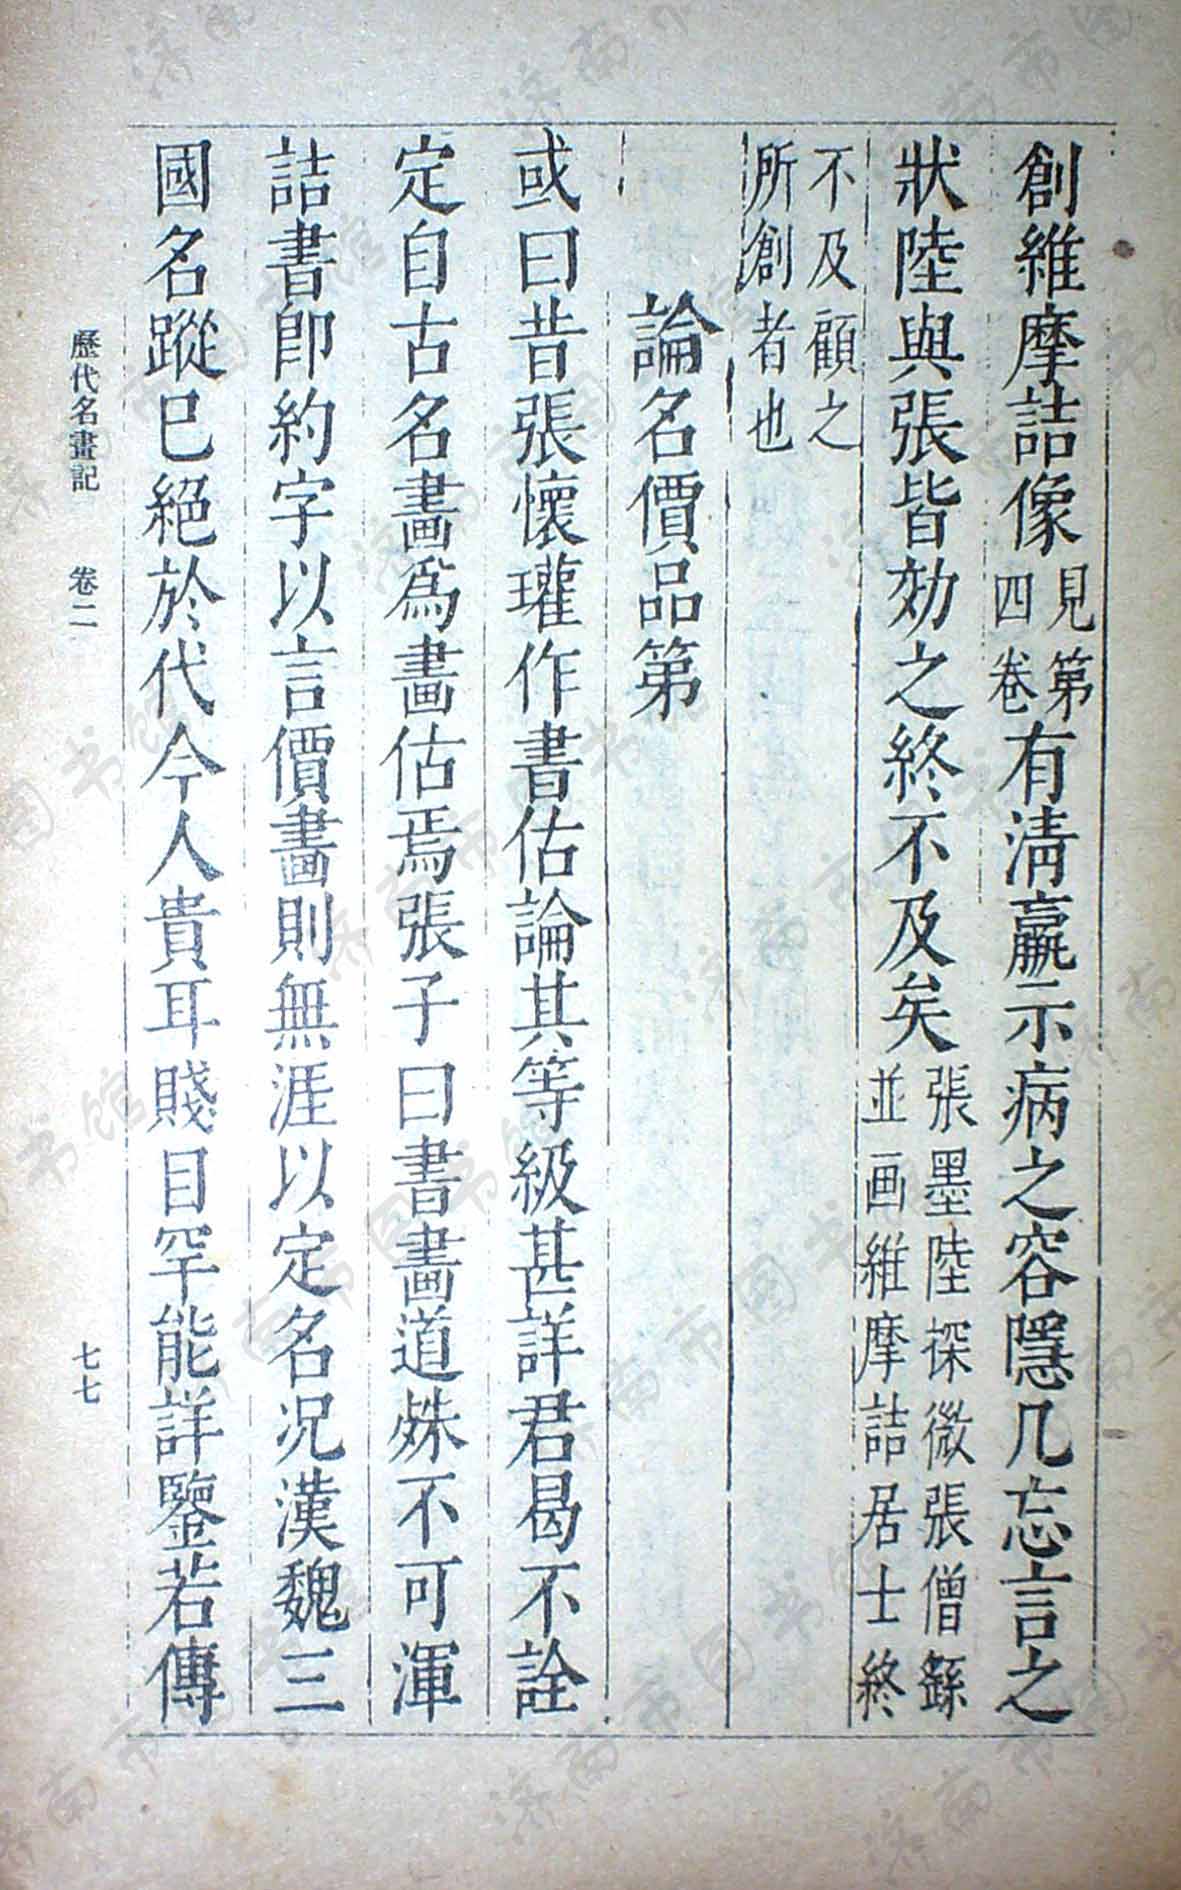 創維摩詰像見第四卷有淸羸示病之容隱几忘言之
狀陸與張皆効之終不及矣張墨陸探微張僧繇並画維摩詰居士終
不及顧之所創者也
論名價品第
或曰昔張懷瓘作書估論其等級甚詳君曷不詮
定自古名畵爲畵估焉張子曰書畵道殊不可渾
詰書即約字以言價畵則無涯以定名况漢魏三
國名蹤已絕於代今人貴耳賤目罕能詳鑒若傳
歷代名畫記 卷二 七七
济南市图书馆